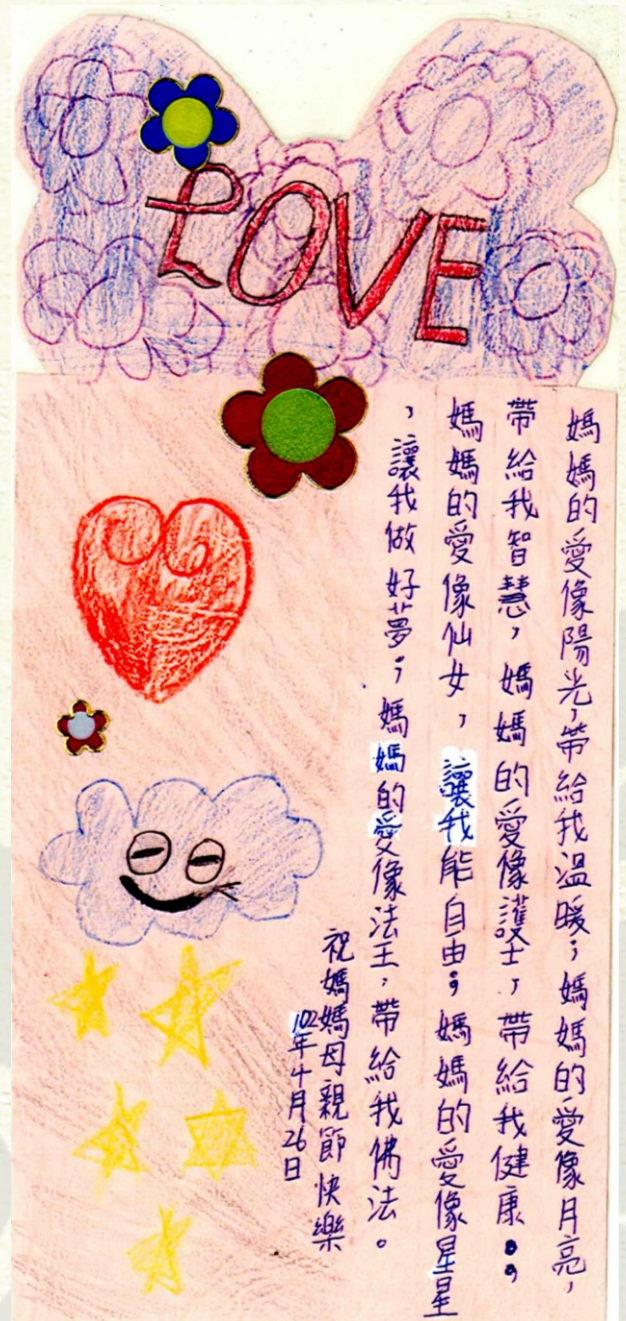 LOVE
媽媽的愛像陽光,帶給我溫暖;媽媽的愛像月亮,
帶給我智慧,媽媽的愛像護士,帶給我健康。;
媽媽的愛像仙女,讓我能自由;媽媽的愛像星星
,讓我做好夢;媽媽的愛像法王,帶給我佛法。
祝媽媽母親節快樂
102年4月26日